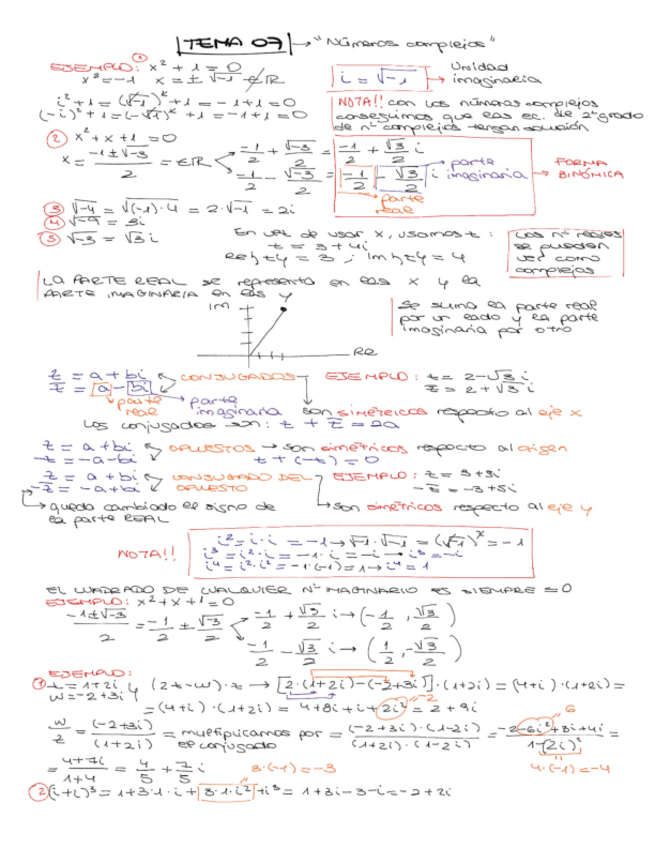 TEMA 07 → "Números complejos"
EJEMPLO: ① x² + 1 = 0
x² = -1 x = ± √-1 ∉ ℝ
i = √-1 → Unidad imaginaria
i² + 1 = (√-1)² + 1 = -1 + 1 = 0
(-i)² + 1 = (-√-1)² + 1 = -1 + 1 = 0
NOTA!! con los números complejos
conseguimos que las ec. de 2º grado
de nº complejos tengan solución
② x² + x + 1 = 0
x = (-1 ± √-3)/2 = ∉ ℝ
-1/2 + √-3/2 = -1/2 + √3/2 i
-1/2 - √-3/2 = -1/2 - √3/2 i
parte imaginaria
parte real
→ FORMA BINÓMICA
③ √-4 = √(-1)·4 = 2·√-1 = 2i
④ √-9 = 3i
⑤ √-3 = √3 i
En vez de usar x, usamos z :
z = 3 + 4i
Re{z} = 3 ; Im{z} = 4
Los nº reales
se pueden
ver como
complejos
LA PARTE REAL se representa en las x y la
PARTE IMAGINARIA en las y
Im
Re
Se suma la parte real
por un lado y la parte
imaginaria por otro
z = a + bi
z̅ = a - bi
CONJUGADOS → EJEMPLO : z = 2 - √3 i
z̅ = 2 + √3 i
parte real
parte imaginaria
son simétricos respecto al eje x
Los conjugados son : z + z̅ = 2a
z = a + bi
-z = -a - bi
OPUESTOS → son simétricos respecto al origen
z + (-z) = 0
z = a + bi
-z̅ = -a + bi
CONJUGADO DEL OPUESTO
EJEMPLO : z = 3 + 5i
-z̅ = -3 + 5i
→ queda cambiado el signo de
la parte REAL
→ son simétricos respecto al eje y
NOTA!!
i² = i · i = -1 → √-1 · √-1 = (√-1)² = -1
i³ = i² · i = -1 · i = -i → i³ = -i
i⁴ = i² · i² = -1·(-1) = 1 → i⁴ = 1
EL CUADRADO DE CUALQUIER Nº IMAGINARIO ES SIEMPRE = 0
EJEMPLO : x² + x + 1 = 0
(-1 ± √-3)/2 = -1/2 ± √-3/2
-1/2 + √3/2 i → (-1/2 , √3/2)
-1/2 - √3/2 i → (1/2 , -√3/2)
EJEMPLO:
① z = 1 + 2i y
w = -2 + 3i
(2z - w) · z → [2·(1+2i) - (-2+3i)] · (1+2i) = (4+i) · (1+2i) =
= (4+i) · (1+2i) = 4 + 8i + i + 2i² = 2 + 9i
-2
w/z = (-2+3i)/(1+2i) = multiplicamos por el conjugado = (-2+3i)·(1-2i)/(1+2i)·(1-2i) = (-2-6i²+3i+4i)/(1-(2i)²) =
6
4·(-1) = -4
= (4+7i)/(1+4) = 4/5 + 7/5 i
3·(-1) = -3
② (1+i)³ = 1 + 3·1·i + 3·1·i² + i³ = 1 + 3i - 3 - i = -2 + 2i